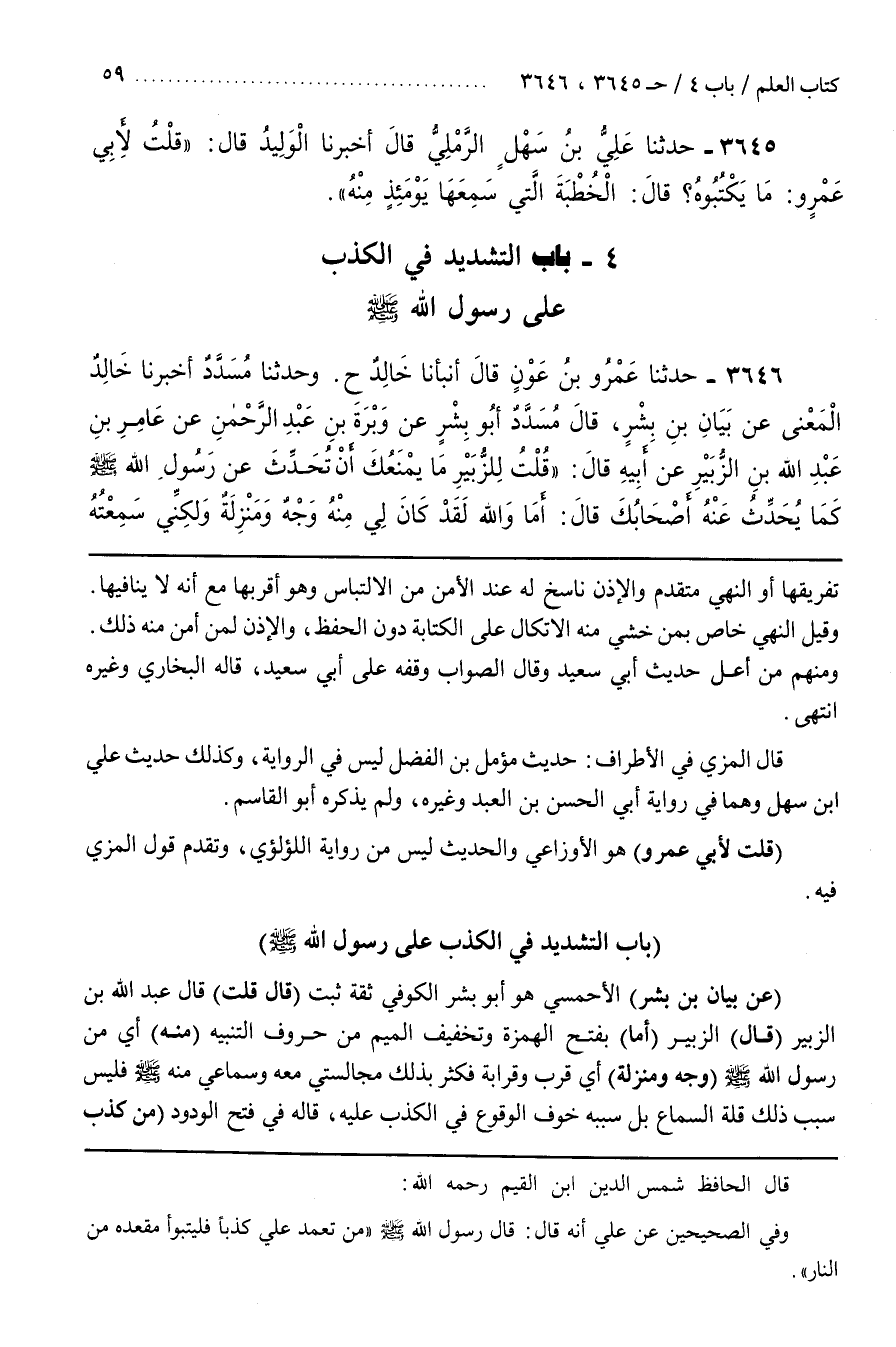 كتاب العلم / باب ٤ / حـ ٣٦٤٥ ، ٣٦٤٦ ........................................ ٥٩
٣٦٤٥ ـ حدثنا عَلِيُّ بنُ سَهْلٍ الرَّمْلِيُّ قالَ أخبرنا الْوَلِيدُ قال: «قلْتُ لِأَبِي
عَمْرٍو: مَا يَكْتُبُوهُ؟ قالَ: الْخُطْبَةَ الَّتي سَمِعَهَا يَوْمَئِذٍ مِنْهُ».
٤ ـ باب التشديد في الكذب
على رسول الله ﷺ
٣٦٤٦ ـ حدثنا عَمْرُو بنُ عَوْنٍ قالَ أنبأنا خَالِدٌ ح. وحدثنا مُسَدَّدٌ أخبرنا خَالِدٌ
الْمَعْنى عن بَيَانِ بنِ بِشْرٍ، قالَ مُسَدَّدٌ أبُو بِشْرٍ عن وَبْرَةَ بنِ عَبْدِ الرَّحْمٰنِ عن عَامِرِ بنِ
عَبْدِ الله بنِ الزُّبَيْرِ عن أَبِيهِ قالَ: «قُلْتُ لِلزُّبَيْرِ مَا يمْنَعُكَ أَنْ تُحَدِّثَ عن رَسُولِ الله ﷺ
كَمَا يُحَدِّثُ عَنْهُ أَصْحَابُكَ قالَ: أمَا وَالله لَقَدْ كَانَ لِي مِنْهُ وَجْهٌ وَمَنْزِلَةٌ وَلكِنِّي سَمِعْتُهُ
تفريقها أو النهي متقدم والإذن ناسخ له عند الأمن من الالتباس وهو أقربها مع أنه لا ينافيها.
وقيل النهي خاص بمن خشي منه الاتكال على الكتابة دون الحفظ، والإذن لمن أمن منه ذلك.
ومنهم من أعـل حديث أبي سعيد وقال الصواب وقفه على أبي سعيد، قاله البخاري وغيره
انتهى.
قال المزي في الأطراف: حديث مؤمل بن الفضل ليس في الرواية، وكذلك حديث علي
ابن سهل وهما في رواية أبي الحسن بن العبد وغيره، ولم يذكره أبو القاسم.
(قلت لأبي عمرو) هو الأوزاعي والحديث ليس من رواية اللؤلؤي، وتقدم قول المزي
فيه.
(باب التشديد في الكذب على رسول الله ﷺ)
(عن بيان بن بشر) الأحمسي هو أبو بشر الكوفي ثقة ثبت (قال قلت) قال عبد الله بن
الزبير (قـال) الزبيـر (أما) بفتـح الهمزة وتخفيف الميم من حـروف التنبيه (منـه) أي من
رسول الله ﷺ (وجه ومنزلة) أي قرب وقرابة فكثر بذلك مجالستي معه وسماعي منه ﷺ فليس
سبب ذلك قلة السماع بل سببه خوف الوقوع في الكذب عليه، قاله في فتح الودود (من كذب
قال الحافظ شمس الدين ابن القيم رحمه الله:
وفي الصحيحين عن علي أنه قال: قال رسول الله ﷺ «من تعمد علي كذباً فليتبوأ مقعده من
النار».